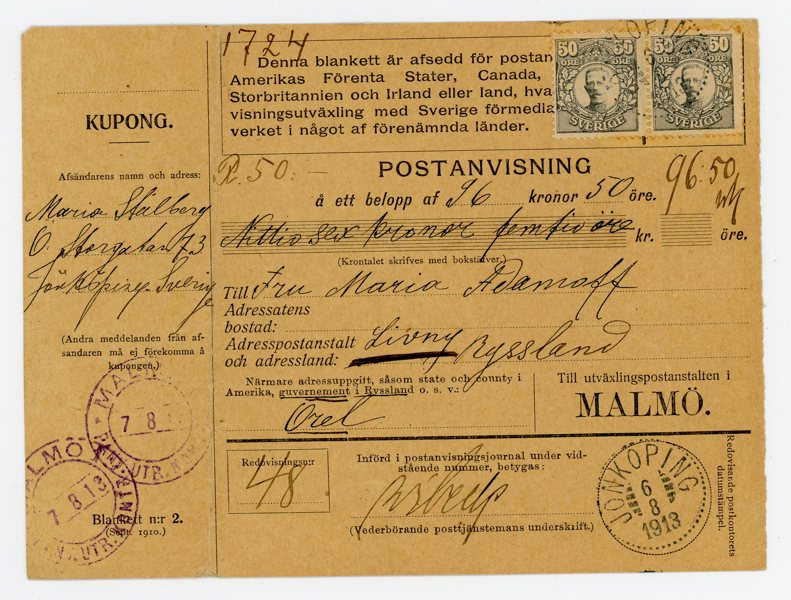 1724
Denna blankett är afsedd för postan
Amerikas Förenta Stater, Canada,
Storbritannien och Irland eller land, hva
visningsutväxling med Sverige förmedla
verket i något af förenämnda länder.
50 ÖRE ÖRE 50
SVERIGE
50 ÖRE ÖRE 50
SVERIGE
KUPONG.
Afsändarens namn och adress:
Maria Stålberg
Ö. Storgatan 73
Jönköping Sverige
(Andra meddelanden från af-
sändaren må ej förekomma å
kupongen.)
MALMÖ
7 8 13
MALMÖ
7 8 13
Blankett n:r 2.
(Sept. 1910.)
R. 50:–
POSTANVISNING
å ett belopp af 96 kronor 50 öre.
96:50
Nittio sex kronor femtio öre kr. öre.
(Krontalet skrifves med bokstäfver.)
Till Fru Maria Adamoff
Adressatens
bostad:
Adresspostanstalt Livny Ryssland
och adressland:
Närmare adressuppgift, såsom state och county i
Amerika, guvernement i Ryssland o. s. v.:
Orel
Till utväxlingspostanstalten i
MALMÖ.
Redovisningsn:r
48
Införd i postanvisningsjournal under vid-
stående nummer, betygas:
(Vederbörande posttjänstemans underskrift.)
JÖNKÖPING
6
8
1913
Redovisande postkontorets
datumstämpel.